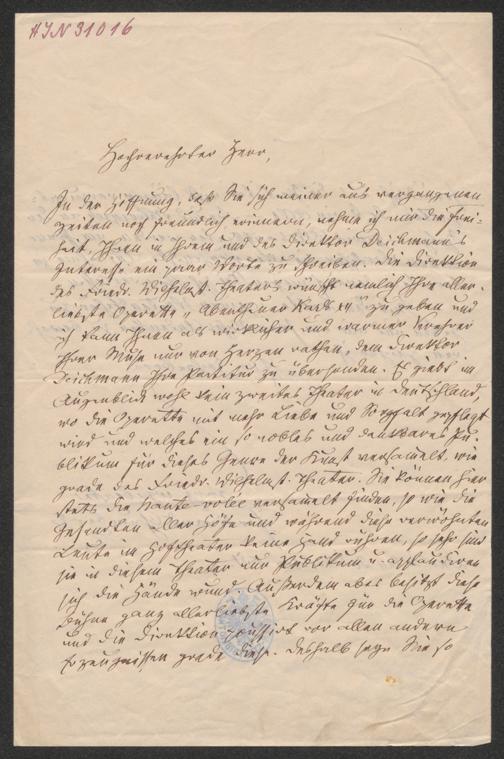 HIN 31016
Hochverehrter Herr,
In der Hoffnung, daß Sie sich meiner aus vergangenen
Zeiten noch freundlich erinnern, nehme ich mir die Frei-
heit Ihnen in Ihrem und des Direktor Deichmann's
Interesse ein paar Worte zu schreiben. Die Direktion
des Friedr. Wilhelmst. Theaters wünscht nemlich Ihre aller-
liebste Operette „Abentheuer Karls XII" zu geben und
ich kann Ihnen als wirklicher und warmer Verehrer
Ihrer Muse nur von Herzen rathen, dem Direktor
Deichmann Ihre Partitur zu übersenden. Es giebt im
Augenblick wohl kein zweites Theater in Deutschland,
wo die Operette mit mehr Liebe und Sorgfalt gepflegt
wird und welches ein so nobles und dankbares Pu-
blikum für dieses Genre der Kunst versamelt wie
grade das Friedr. Wilhelmst. Theater. Sie können hier
stets die haute volée versamelt finden, so wie die
Gesandten aller Höfe und während diese verwöhnten
Leute im Hoftheater keine Hand rühren, so sehr sind
sie in diesem Theater nur Publikum u. applaudiren
sich die Hände wund. Außerdem aber besitzt diese
Bühne ganz allerliebste Kräfte für die Operette
und die Direktion poussirt vor allen andern
Erzeugnissen grade diese. Deshalb sage Sie so